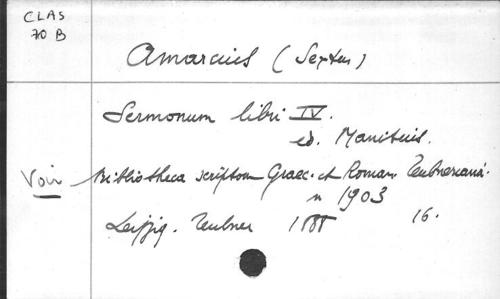 CLAS
70 B
Amarcius (Sextus)
Sermonum libri IV.
ed. Manitius.
Voir Bibliotheca scriptorum Graec. et Roman. Teubneriana.
n 1903
Leipzig. Teubner 1888 16.